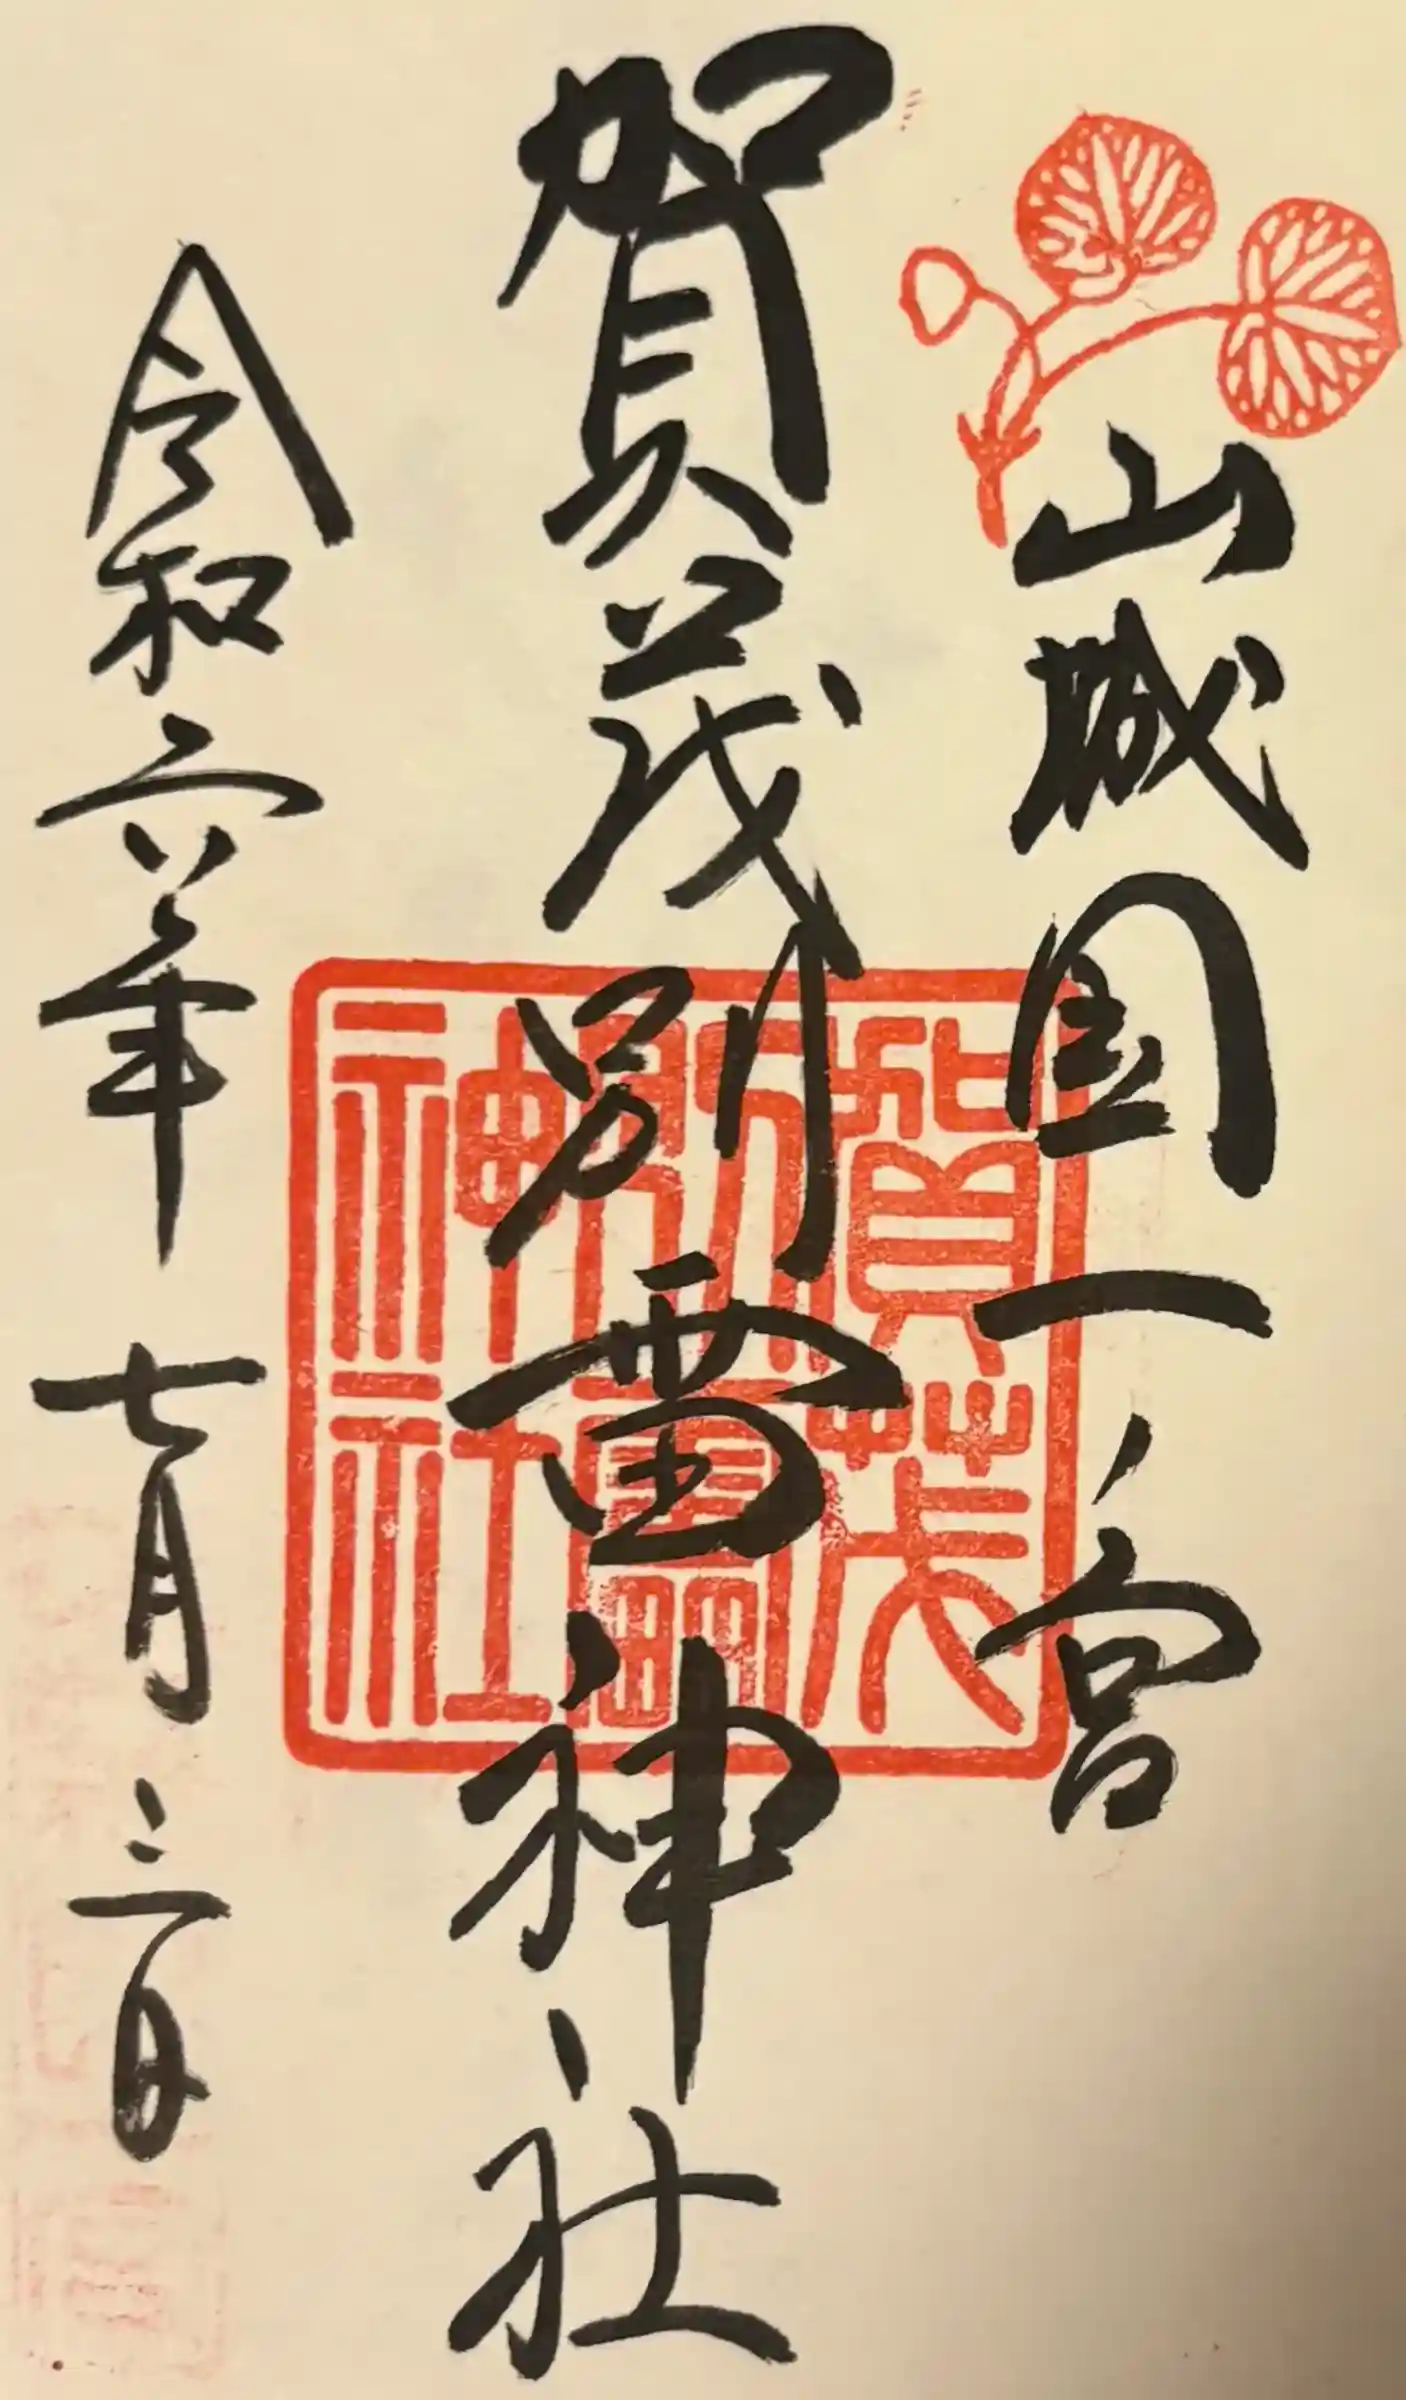 山城国一ノ宮
賀茂別雷神社
令和六年 七月三日
賀茂
別雷
神社